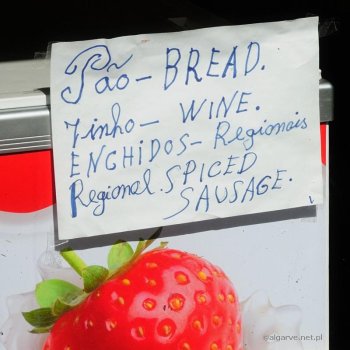 Pão - BREAD.
Vinho - WINE.
ENCHIDOS - Regionais
Regional. SPICED
SAUSAGE.
@algarve.net.pl